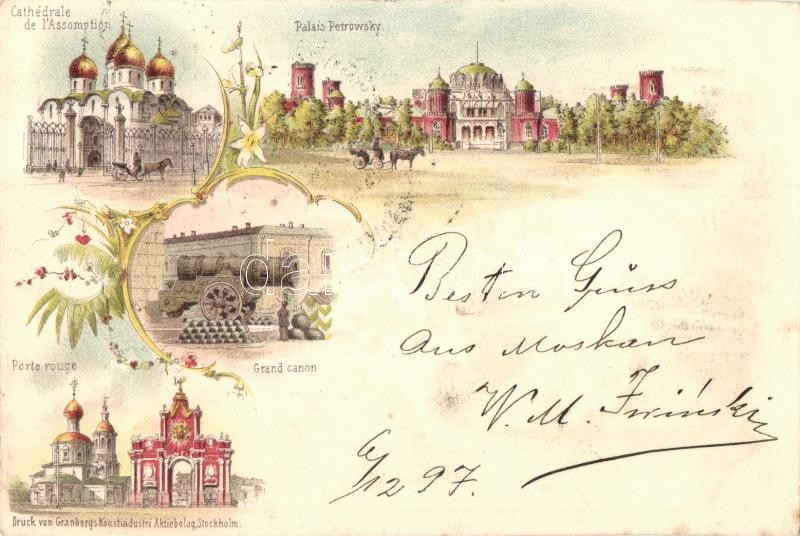 Cathédrale
de l'Assomption
Palais Petrowsky
Grand canon
Porte rouge
Druck von Granbergs Konstindustri Aktiebolag, Stockholm.
Besten Gruss
aus Moskau
W. M.
6/12 97.